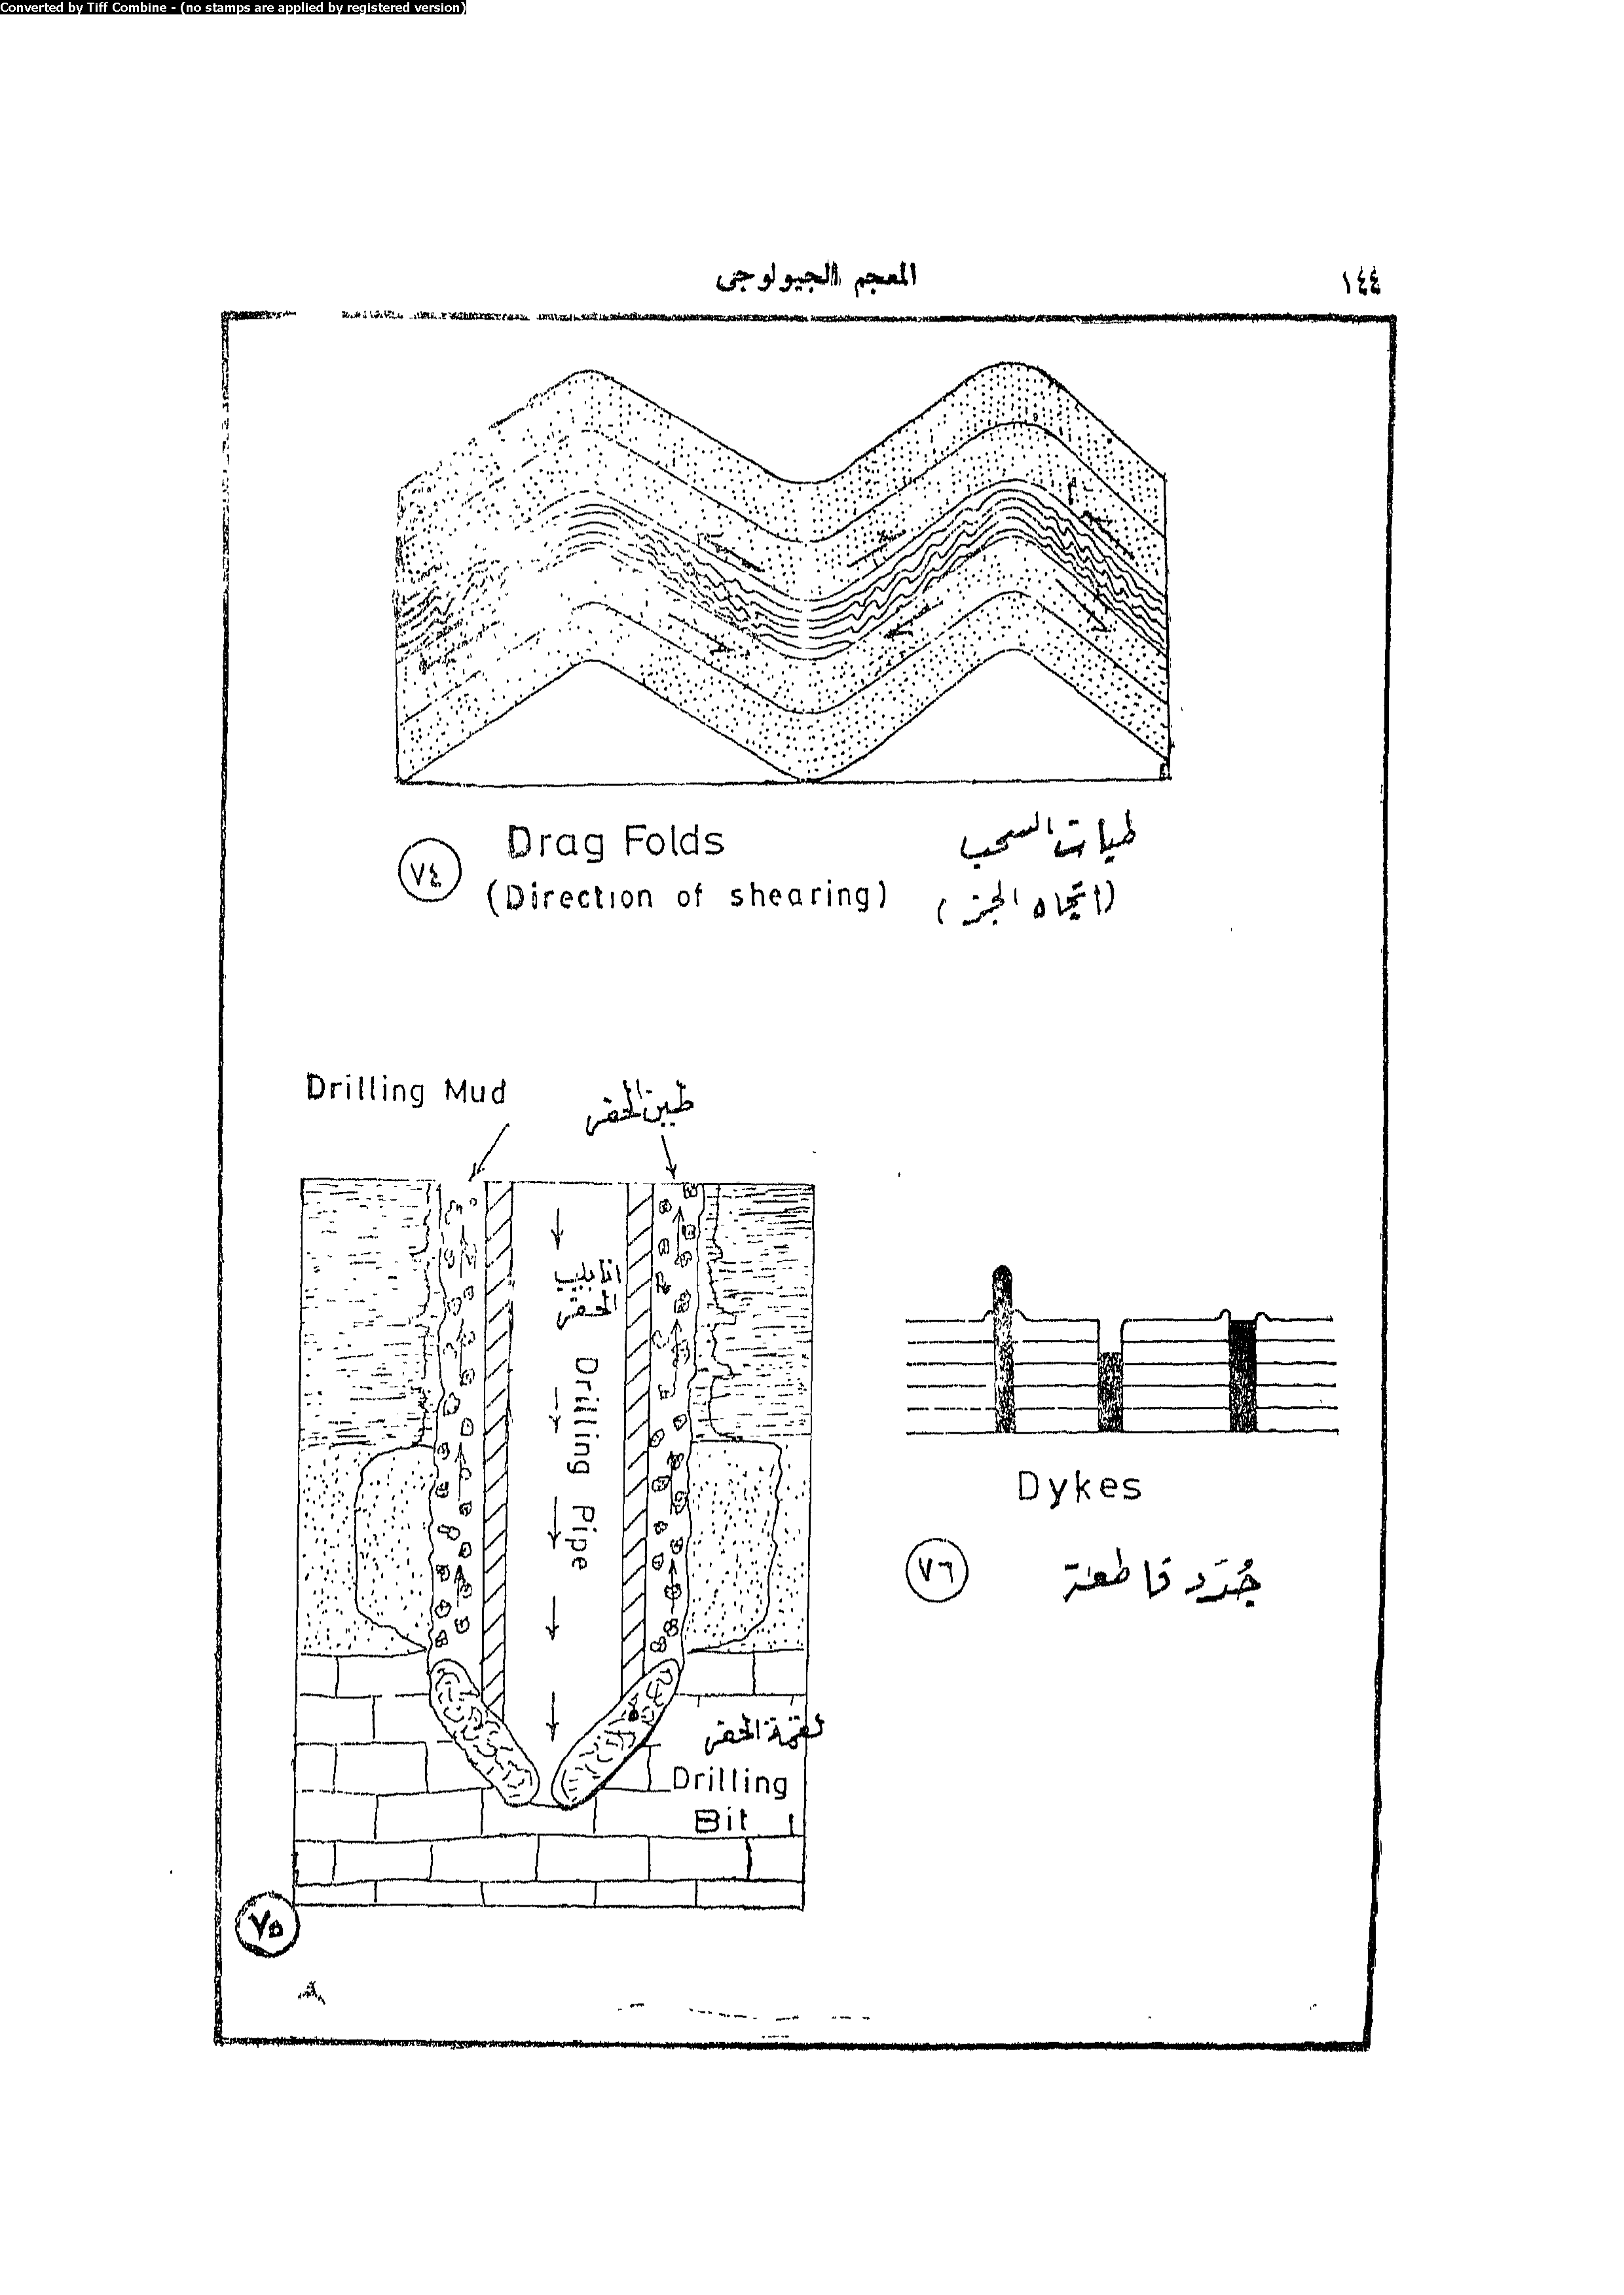 Converted by Tiff Combine - (no stamps are applied by registered version)
المعجم الجيولوجى
١٤٤
Drag Folds
طيات السحب
٧٤
(Direction of shearing)
(اتجاه الجز)
Drilling Mud
طين الحفر
انابيب
الحفر
Drilling Pipe
لقمة الحفر
Drilling
Bit
٧٥
Dykes
٧٦
جُدَد قاطعة